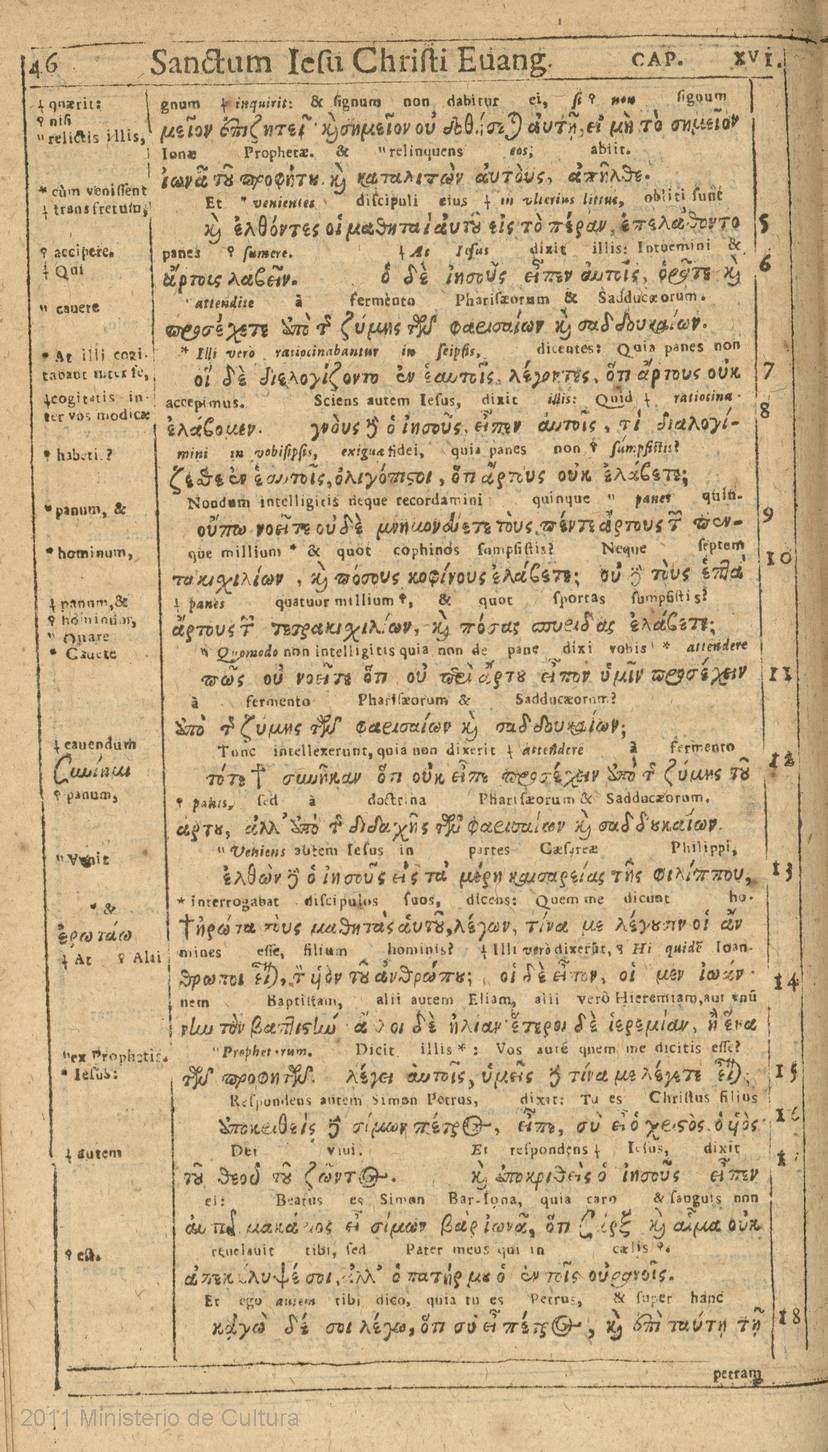 46 Sanctum Iesu Christi Euang. CAP. XVI.
gnum ⸸ inquirit: & signum non dabitur ei, si ⸮ non signum
μεῖον ἐπιζητεῖ· καὶ σημεῖον οὐ δοθήσεται αὐτῇ, εἰ μὴ τὸ σημεῖον
Ionæ Prophetæ. & " relinquens eos, abiit.
ἰωνᾶ τοῦ προφήτου. καὶ καταλιπὼν αὐτοὺς, ἀπῆλθε.
Et * venientes discipuli eius ⸸ in vlterius littus, obliti sunt
καὶ ἐλθόντες οἱ μαθηταὶ αὐτοῦ εἰς τὸ πέραν, ἐπελάθοντο 5
panes ⸮ sumere. ⸸ At Iesus dixit illis: Intuemini &
ἄρτους λαβεῖν. ὁ δὲ ἰησοῦς εἶπεν αὐτοῖς, ὁρᾶτε καὶ 6
" attendite à fermento Pharisæorum & Sadducæorum.
προσέχετε ἀπὸ τῆς ζύμης τῶν φαρισαίων καὶ σαδδουκαίων.
* Illi verò ratiocinabantur in seipsis, dicentes: Quia panes non
οἱ δὲ διελογίζοντο ἐν ἑαυτοῖς, λέγοντες, ὅτι ἄρτους οὐκ 7
accepimus. Sciens autem Iesus, dixit illis: Quid ⸸ ratiocina-
ἐλάβομεν. γνοὺς δὲ ὁ ἰησοῦς, εἶπεν αὐτοῖς, τί διαλογί- 8
mini in vobisipsis, exiguæ fidei, quia panes non ⸮ sumpsistis?
ζεσθε ἐν ἑαυτοῖς, ὀλιγόπιστοι, ὅτι ἄρτους οὐκ ἐλάβετε;
Nondum intelligitis neque recordamini quinque " panes quin-
οὔπω νοεῖτε οὐδὲ μνημονεύετε τοὺς πέντε ἄρτους τῶν πεν- 9
que millium * & quot cophinos sumpsistis? Neque septem
τακιχιλίων, καὶ πόσους κοφίνους ἐλάβετε; οὐδὲ τοὺς ἑπτὰ 10
⸸ panes quatuor millium ⸮, & quot sportas sumpsistis?
ἄρτους τῶν τετρακιχιλίων, καὶ πόσας σπυρίδας ἐλάβετε;
" Quomodo non intelligitis quia non de pane dixi vobis * attendere
πῶς οὐ νοεῖτε ὅτι οὐ περὶ ἄρτου εἶπον ὑμῖν προσέχειν 11
à fermento Pharisæorum & Sadducæorum?
ἀπὸ τῆς ζύμης τῶν φαρισαίων καὶ σαδδουκαίων;
Tunc intellexerunt, quia non dixerit ⸸ attendere à fermento
τότε † συνῆκαν ὅτι οὐκ εἶπε προσέχειν ἀπὸ τῆς ζύμης τοῦ 12
⸮ panis, sed à doctrina Pharisæorum & Sadducæorum.
ἄρτου, ἀλλ' ἀπὸ τῆς διδαχῆς τῶν φαρισαίων καὶ σαδδουκαίων.
" Veniens autem Iesus in partes Cæsareæ Philippi,
ἐλθὼν δὲ ὁ ἰησοῦς εἰς τὰ μέρη καισαρείας τῆς φιλίππου, 13
* interrogabat discipulos suos, dicens: Quem me dicunt ho-
† ἠρώτα τοὺς μαθητὰς αὐτοῦ, λέγων, τίνα με λέγουσιν οἱ ἄν
mines esse, filium hominis? ⸸ Illi verò dixerũt, ⸮ Hi quidẽ Ioan-
θρωποι εἶναι, τὸν υἱὸν τοῦ ἀνθρώπου; οἱ δὲ εἶπον, οἱ μὲν ἰωάν- 14
nem Baptistam, alii autem Eliam, alii verò Hieremiam, aut vnũ
νην τὸν βαπτιστὴν ἄλλοι δὲ ἠλίαν ἕτεροι δὲ ἱερεμίαν, ἢ ἕνα
" Prophetarum. Dicit illis *: Vos autẽ quem me dicitis esse?
τῶν προφητῶν. λέγει αὐτοῖς, ὑμεῖς δὲ τίνα με λέγετε εἶναι; 15
Respondens autem Simon Petrus, dixit: Tu es Christus filius
ἀποκριθεὶς δὲ σίμων πέτρος, εἶπε, σὺ εἶ ὁ χριστὸς ὁ υἱὸς 16
Dei viui. Et respondens ⸸ Iesus, dixit
τοῦ θεοῦ τοῦ ζῶντος. καὶ ἀποκριθεὶς ὁ ἰησοῦς εἶπεν
ei: Beatus es Simon Bar-Iona, quia caro & sanguis non
αὐτῷ μακάριος εἶ σίμων βὰρ ἰωνᾶ, ὅτι σὰρξ καὶ αἷμα οὐκ
reuelauit tibi, sed Pater meus qui in cælis ⸮.
ἀπεκάλυψέ σοι, ἀλλ' ὁ πατήρ μου ὁ ἐν τοῖς οὐρανοῖς.
Et ego autem tibi dico, quia tu es Petrus, & super hanc
κἀγὼ δέ σοι λέγω, ὅτι σὺ εἶ πέτρος, καὶ ἐπὶ ταύτῃ τῇ 18
petram
⸸ quærit:
⸮ nisi
" relictis illis,
* cùm venissent
⸸ trans fretum,
⸮ accipere.
⸸ Qui
" cauete
* At illi cogi-
tabant inter se,
⸸ cogitatis in-
ter vos modicæ
⸮ habeti.?
" panum, &
* hominum,
⸸ panum, &
⸮ hominum,
" Quare
* Cauete
⸸ cauendum
Συνίημι
⸮ panum,
" Venit
* &
ἐρωτάω
⸸ At ⸮ Alii
" ex Prophetis.
* Iesus:
⸸ autem
⸮ est.
2011 Ministerio de Cultura